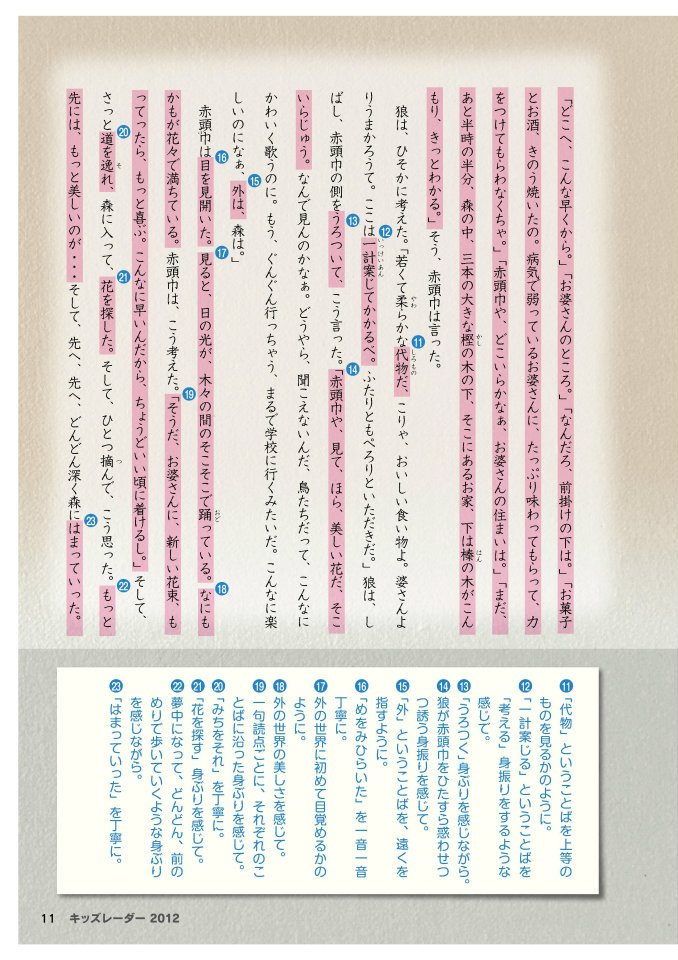 「どこへ、こんな早くから。」「お婆さんのところ。」「なんだろ、前掛けの下は。」「お菓子
とお酒、きのう焼いたの。病気で弱っているお婆さんに、たっぷり味わってもらって、力
をつけてもらわなくちゃ。」「赤頭巾や、どこいらかなぁ、お婆さんの住まいは。」「まだ、
あと半時の半分、森の中、三本の大きな樫の木の下、そこにあるお家、下は榛の木がこん
もり、きっとわかる。」そう、赤頭巾は言った。
狼は、ひそかに考えた。「若くて柔らかな代物だ、こりゃ、おいしい食い物よ。婆さんよ
りうまかろうて。ここは一計案じてかかるべ。ふたりともぺろりといただきだ。」狼は、し
ばし、赤頭巾の側をうろついて、こう言った。「赤頭巾や、見て、ほら、美しい花だ、そこ
いらじゅう。なんで見んのかなぁ。どうやら、聞こえないんだ、鳥たちだって、こんなに
かわいく歌うのに。もう、ぐんぐん行っちゃう、まるで学校に行くみたいだ。こんなに楽
しいのになぁ、外は、森は。」
赤頭巾は目を見開いた。見ると、日の光が、木々の間のそこそこで踊っている。なにも
かもが花々で満ちている。赤頭巾は、こう考えた。「そうだ、お婆さんに、新しい花束、も
ってったら、もっと喜ぶ。こんなに早いんだから、ちょうどいい頃に着けるし。」そして、
さっと道を逸れ、森に入って、花を探した。そして、ひとつ摘んで、こう思った。もっと
先には、もっと美しいのが・・・そして、先へ、先へ、どんどん深く森にはまっていった。
⑪「代物」ということばを上等の
ものを見るかのように。
⑫「一計案じる」ということばを
「考える」身振りをするような
感じて。
⑬「うろつく」身ぶりを感じながら。
⑭狼が赤頭巾をひたすら惑わせつ
つ誘う身振りを感じて。
⑮「外」ということばを、遠くを
指すように。
⑯「めをみひらいた」を一音一音
丁寧に。
⑰外の世界に初めて目覚めるかの
ように。
⑱外の世界の美しさを感じて。
⑲一句読点ごとに、それぞれのこ
とばに沿った身ぶりを感じて。
⑳「みちをそれ」を丁寧に。
㉑「花を探す」身ぶりを感じて。
㉒夢中になって、どんどん、前の
めりて歩いていくような身ぶり
を感じながら。
㉓「はまっていった」を丁寧に。
11 キッズレーダー 2012